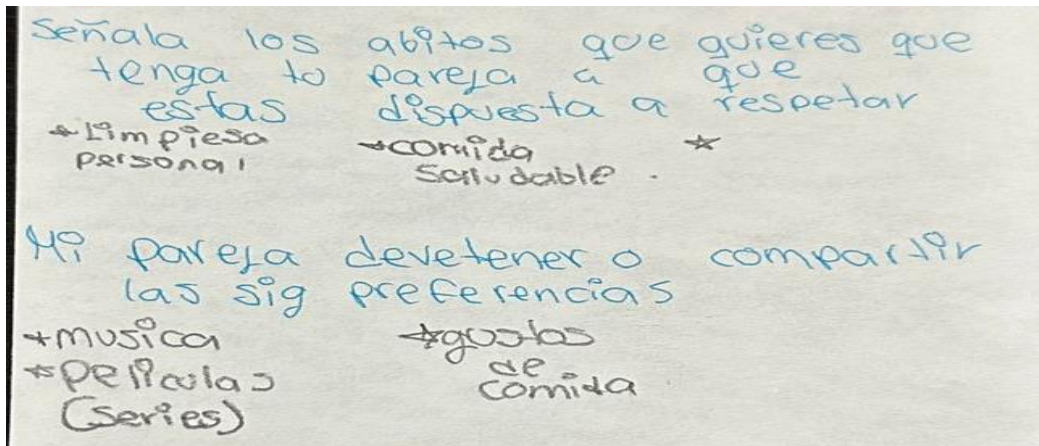 Señala los abitos que quieres que
tenga tu pareja a que
estas dispuesta a respetar
*Limpiesa *comida *
personal saludable.
Mi pareja devetener o compartir
las sig preferencias
*musica *gustos
*peliculas de
(series) comida